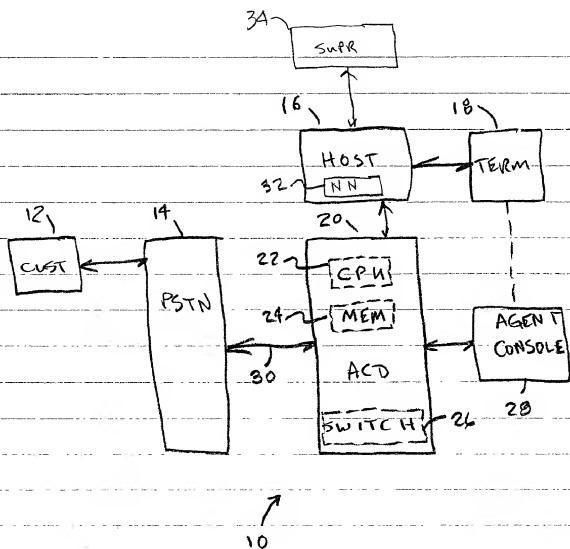 34
SUPR
16
18
HOST
TERM
32
NN
12
14
20
22
CPU
CUST
PSTN
24
MEM
AGENT
CONSOLE
30
ACD
28
SWITCH
26
10